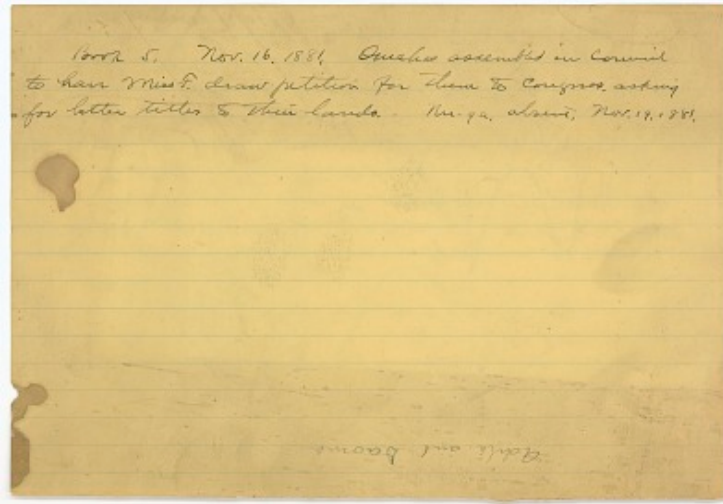 Book 5. Nov. 16, 1881, Omahas assembled in Council
to have Miss F. draw petition for them to Congress, asking
for better titles to their lands. absent, Nov. 19, 1881.
and